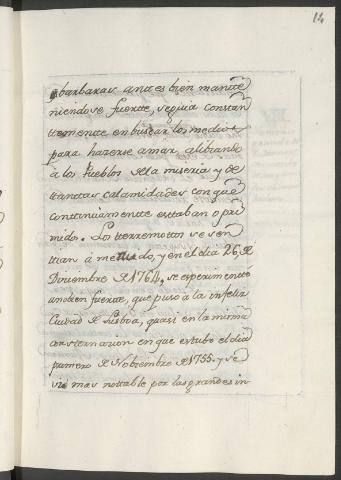 14
barbaras antes bien mante
niendose fuertte, seguia constan
ttementte en buscar los medios
para hazerse amar, alibiando
à los Pueblos de la miseria y de
ttanttas calamidades con que
conttinuamentte esttaban opri
mido. Los tterremottos se sen
ttian à menudo, y en el dia 26, de
Diciembre de 1764, se esperimentto
un bien fuertte, que puso à la infeliz
Ciudad de Lisboa, quasi en la misma
consternacion en que estubo el dia
primero de Nobiembre de 1755. y se
vio mas nottable por las grandes in